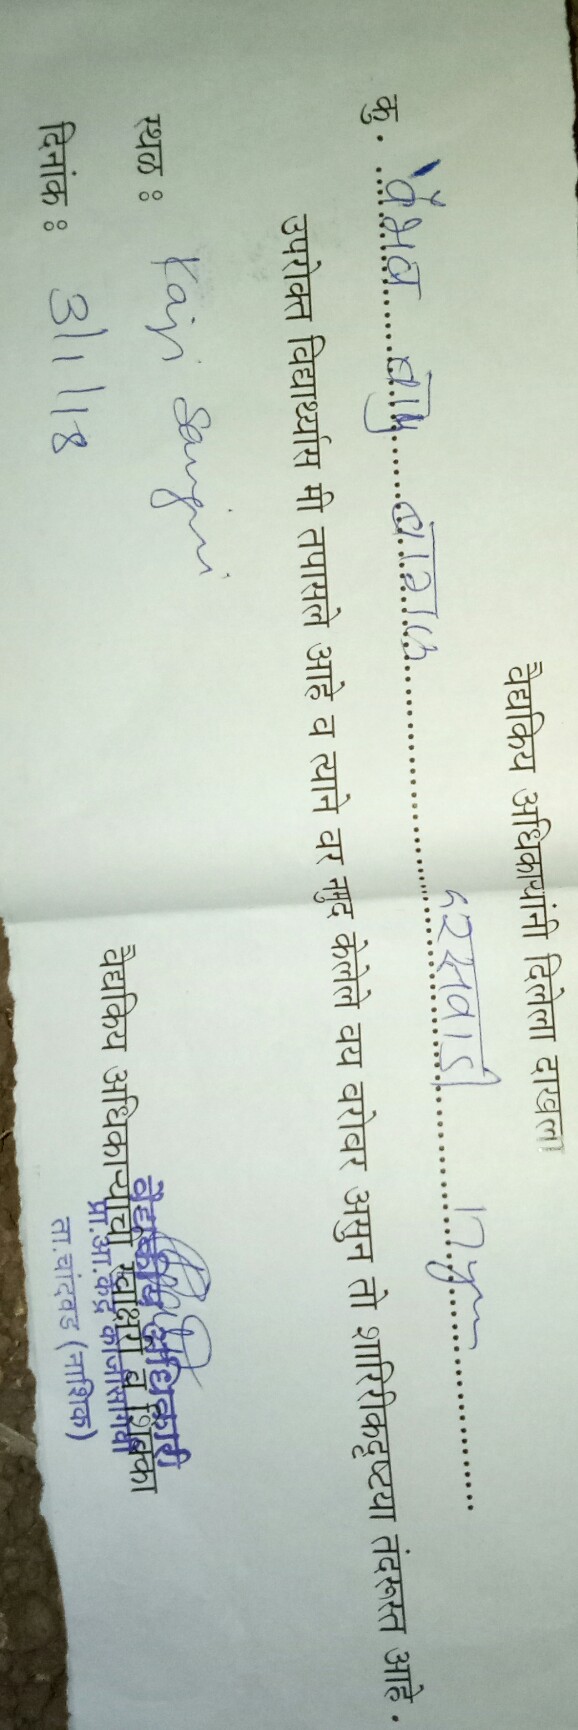 वैद्यकिय अधिकार्यांनी दिलेला दाखला
कु. वैभव बापु बारगळ वरसवाडी 17yrs
उपरोक्त विद्यार्थ्यास मी तपासले आहे व त्याने वर नमुद केलेले वय बरोबर असुन तो शारिरीकदृष्टया तंदरूस्त आहे.
स्थळ : Kaji sangvi
दिनांक : 3/1/18
वैद्यकिय अधिकाऱ्याची स्वाक्षरी व शिक्का
वैद्यकीय अधिकारी
प्रा.आ.केंद्र काजीसांगवी
ता.चांदवड (नाशिक)